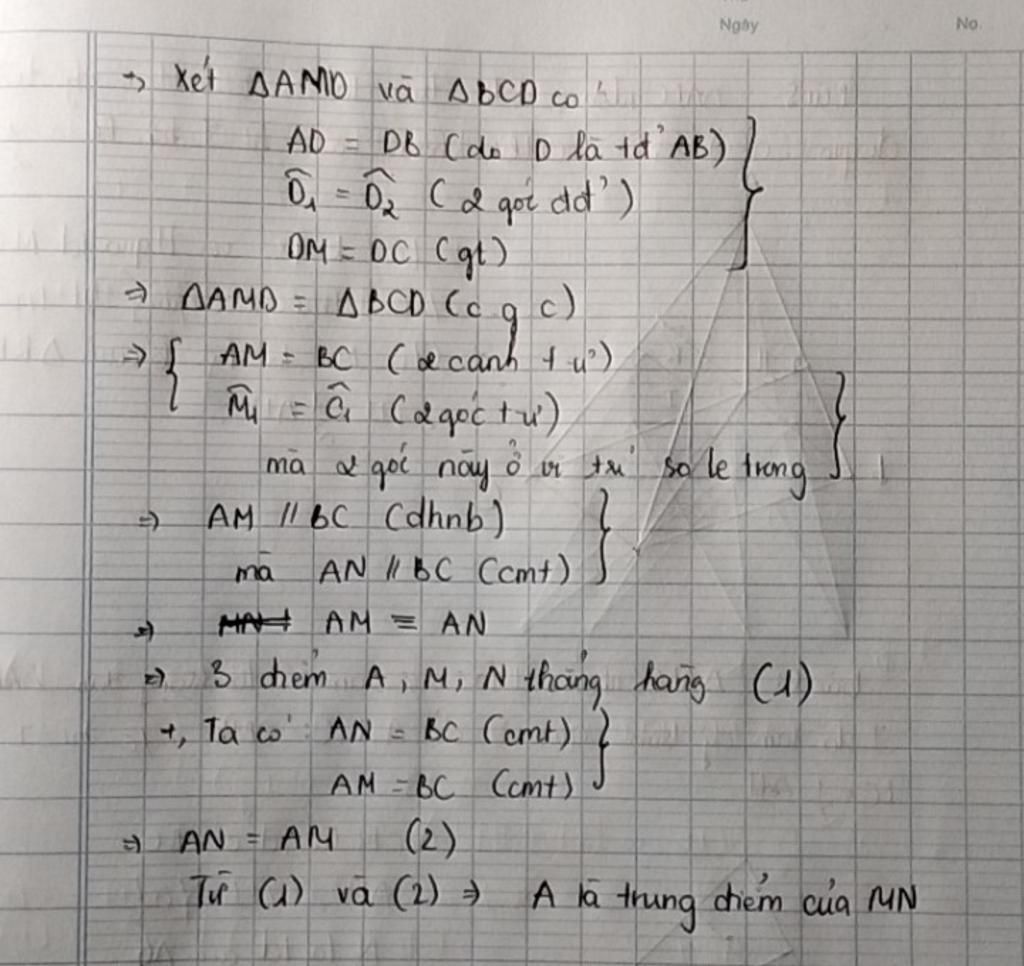 Ngày No.
→ Xét ΔAMD và ΔBCD có
AD = DB (do D là tđ' AB)
D̂₁ = D̂₂ (2 góc đđ')
DM = DC (gt)
⇒ ΔAMD = ΔBCD (c g c)
⇒ { AM = BC (2 cạnh t ư')
M̂₁ = Ĉ₁ (2 góc t ư')
mà 2 góc này ở vị trí so le trong
⇒ AM // BC (dhnb)
mà AN // BC (cmt)
⇒ AM ≡ AN
⇒ 3 điểm A, M, N thẳng hàng (1)
+, Ta có AN = BC (cmt)
AM = BC (cmt)
⇒ AN = AM (2)
Từ (1) và (2) ⇒ A là trung điểm của MN